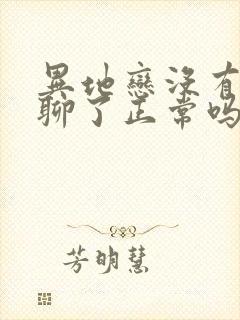 異地戀沒有
聊了正常嗎
芳明慧